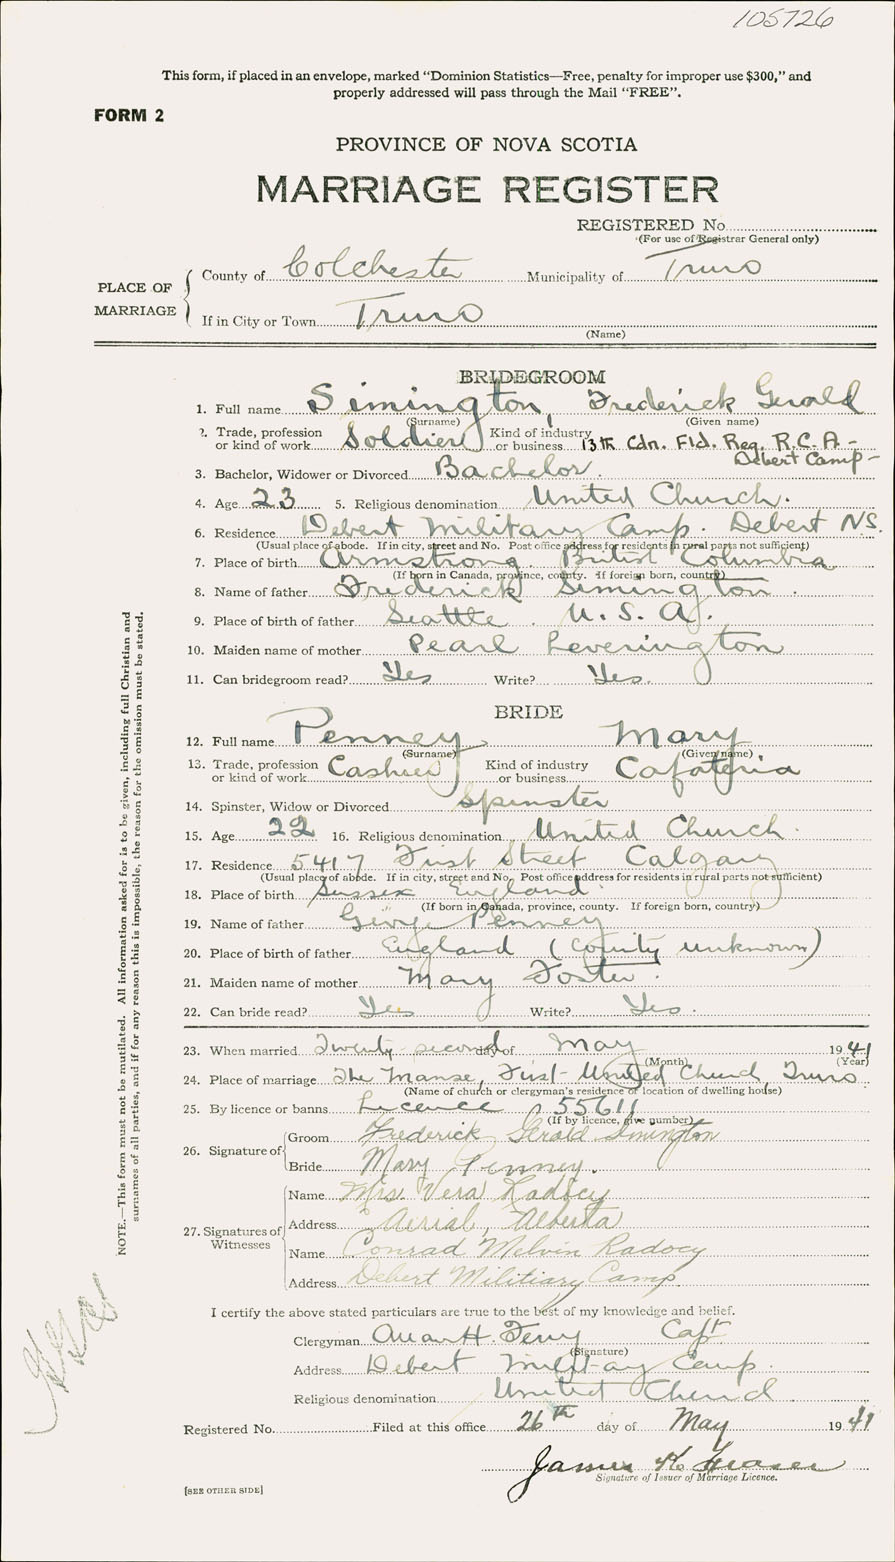 105726
This form, if placed in an envelope, marked “Dominion Statistics—Free, penalty for improper use $300,” and
properly addressed will pass through the Mail “FREE”.
FORM 2
PROVINCE OF NOVA SCOTIA
MARRIAGE REGISTER
REGISTERED No.
(For use of Registrar General only)
PLACE OF MARRIAGE
County of Colchester Municipality of Truro
If in City or Town Truro
(Name)
BRIDEGROOM
1. Full name Simington, Frederick Gerald
(Surname) (Given name)
2. Trade, profession or kind of work Soldier Kind of industry or business 13th Cdn. Fld. Reg. R.C.A. -
Debert Camp -
3. Bachelor, Widower or Divorced Bachelor.
4. Age 23 5. Religious denomination United Church.
6. Residence Debert Military Camp. Debert N.S.
(Usual place of abode. If in city, street and No. Post office address for residents in rural parts not sufficient)
7. Place of birth Armstrong British Columbia
(If born in Canada, province, county. If foreign born, country)
8. Name of father Frederick Simington.
9. Place of birth of father Seattle. U.S.A.
10. Maiden name of mother Pearl Leverington
11. Can bridegroom read? Yes Write? Yes.
BRIDE
12. Full name Penney, Mary
(Surname) (Given name)
13. Trade, profession or kind of work Cashier Kind of industry or business Cafateria
14. Spinster, Widow or Divorced Spinster
15. Age 22 16. Religious denomination United Church.
17. Residence 5417 First Street Calgary
(Usual place of abode. If in city, street and No. Post office address for residents in rural parts not sufficient)
18. Place of birth Sussex England.
(If born in Canada, province, county. If foreign born, country)
19. Name of father Penney
20. Place of birth of father England (county unknown)
21. Maiden name of mother Mary Foster.
22. Can bride read? Yes Write? Yes.
23. When married Twenty-second day of May 1941
(Month) (Year)
24. Place of marriage The Manse, First United Church, Truro
(Name of church or clergyman's residence or location of dwelling house)
25. By licence or banns Licence 55611
(If by licence, give number)
26. Signature of
Groom Frederick Gerald Simington
Bride Mary Penney.
27. Signatures of Witnesses
Name Mrs. Vera Radocy
Address Aerial, Alberta
Name Conrad Melvin Radocy
Address Debert Militiary Camp
I certify the above stated particulars are true to the best of my knowledge and belief.
Clergyman Capt
(Signature)
Address Debert Military Camp.
Religious denomination United Church
Registered No. Filed at this office 26th day of May 1941
James K. Fraser
Signature of Issuer of Marriage Licence.
[SEE OTHER SIDE]
NOTE.—This form must not be mutilated. All information asked for is to be given, including full Christian and
surnames of all parties, and if for any reason this is impossible, the reason for the omission must be stated.